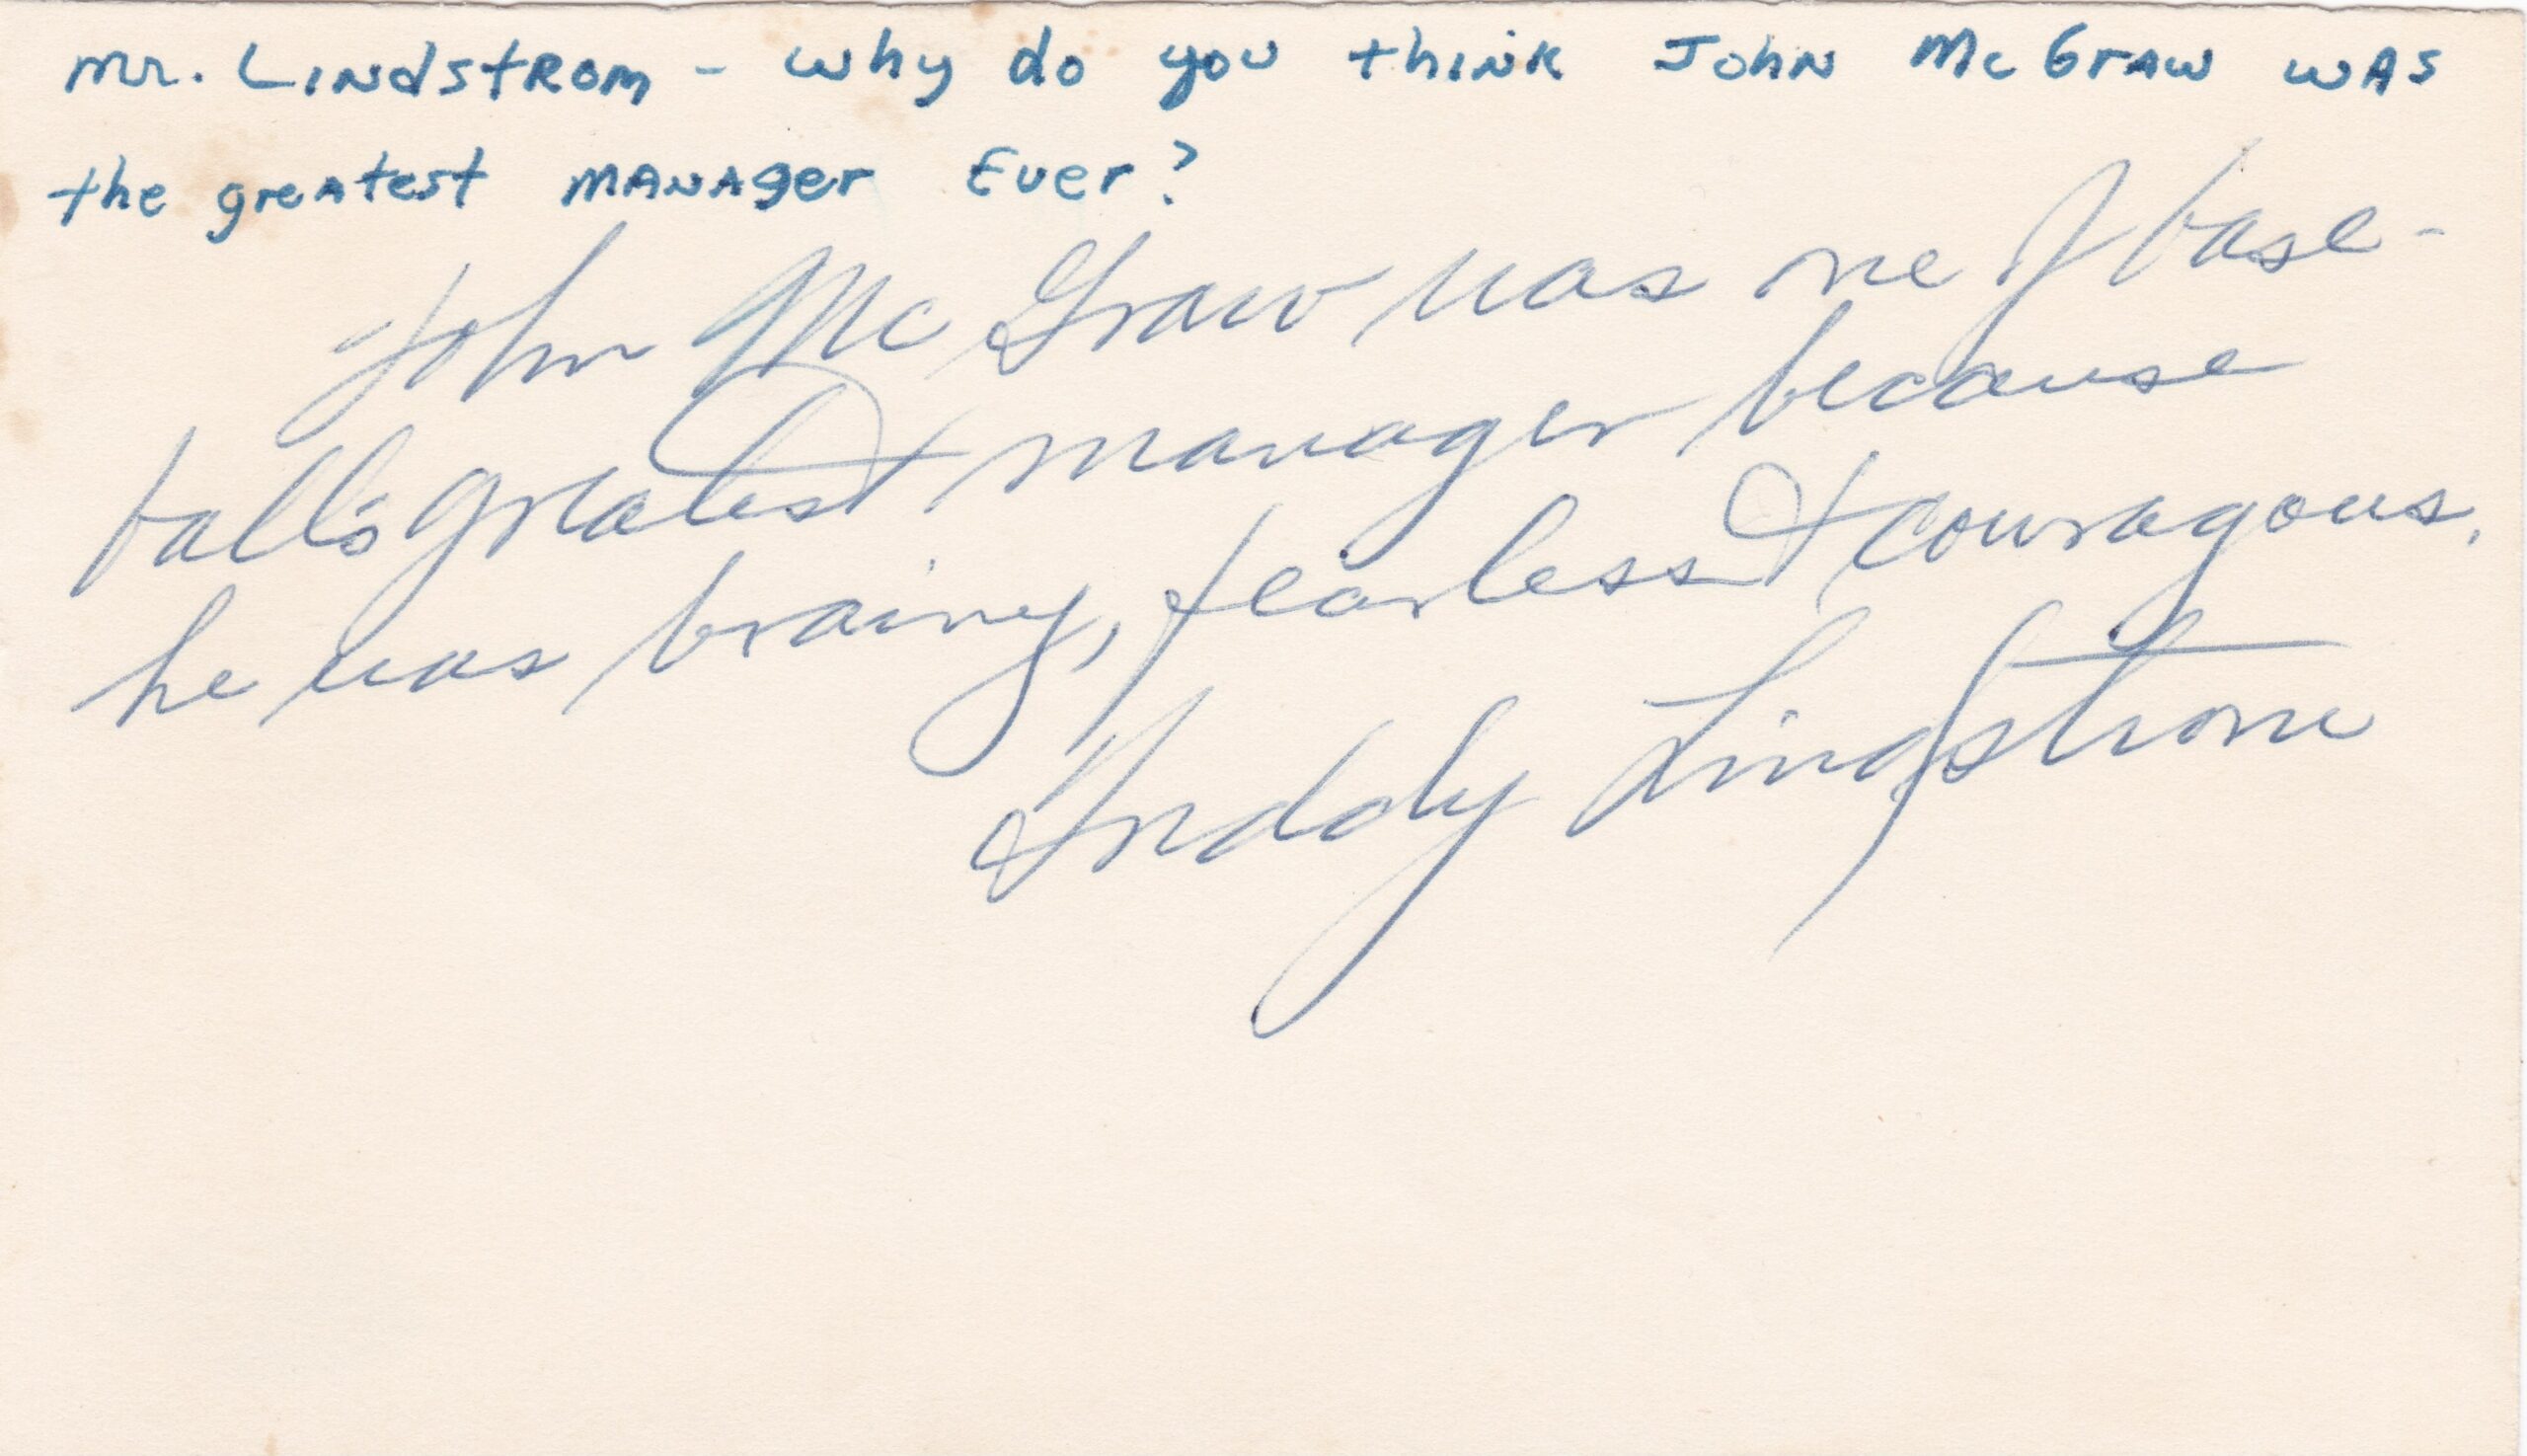 Mr. Lindstrom - why do you think John McGraw was
the greatest manager ever?
John McGraw was one of base-
ball's greatest manager because
he was brainy, fearless & couragous.
Freddy Lindstrom